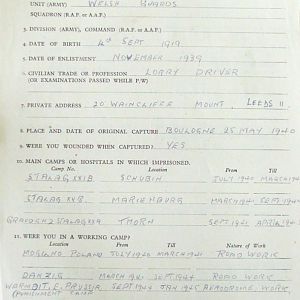 UNIT (ARMY) WELSH GUARDS
SQUADRON (R.A.F. or A.A.F.)
3. DIVISION (ARMY), COMMAND (R.A.F. or A.A.F.)
4. DATE OF BIRTH 4th SEPT 1919
5. DATE OF ENLISTMENT NOVEMBER 1939
6. CIVILIAN TRADE OR PROFESSION LORRY DRIVER
(OR EXAMINATIONS PASSED WHILE P/W)
7. PRIVATE ADDRESS 20 WAINCLIFFE MOUNT, LEEDS 11.
8. PLACE AND DATE OF ORIGINAL CAPTURE BOULOGNE 25 MAY 1940
9. WERE YOU WOUNDED WHEN CAPTURED? YES
10. MAIN CAMPS OR HOSPITALS IN WHICH IMPRISONED.
Camp No. Location From Till
STALAG XXIB SCHUBIN JULY 1940 MARCH 1941
STALAG XXB MARIENBURG MARCH 1941 SEPT 1941
STALAG XXA THORN SEPT 1941 APRIL
11. WERE YOU IN A WORKING CAMP?
Location From Till Nature of Work
POLAND JULY 1940 MARCH 1941 ROAD WORK
DANZIG MARCH 1941 SEPT 1941 ROAD WORK
E. PRUSSIA SEPT JAN 1945 AERODROME WORK
(PUNISHMENT CAMP)